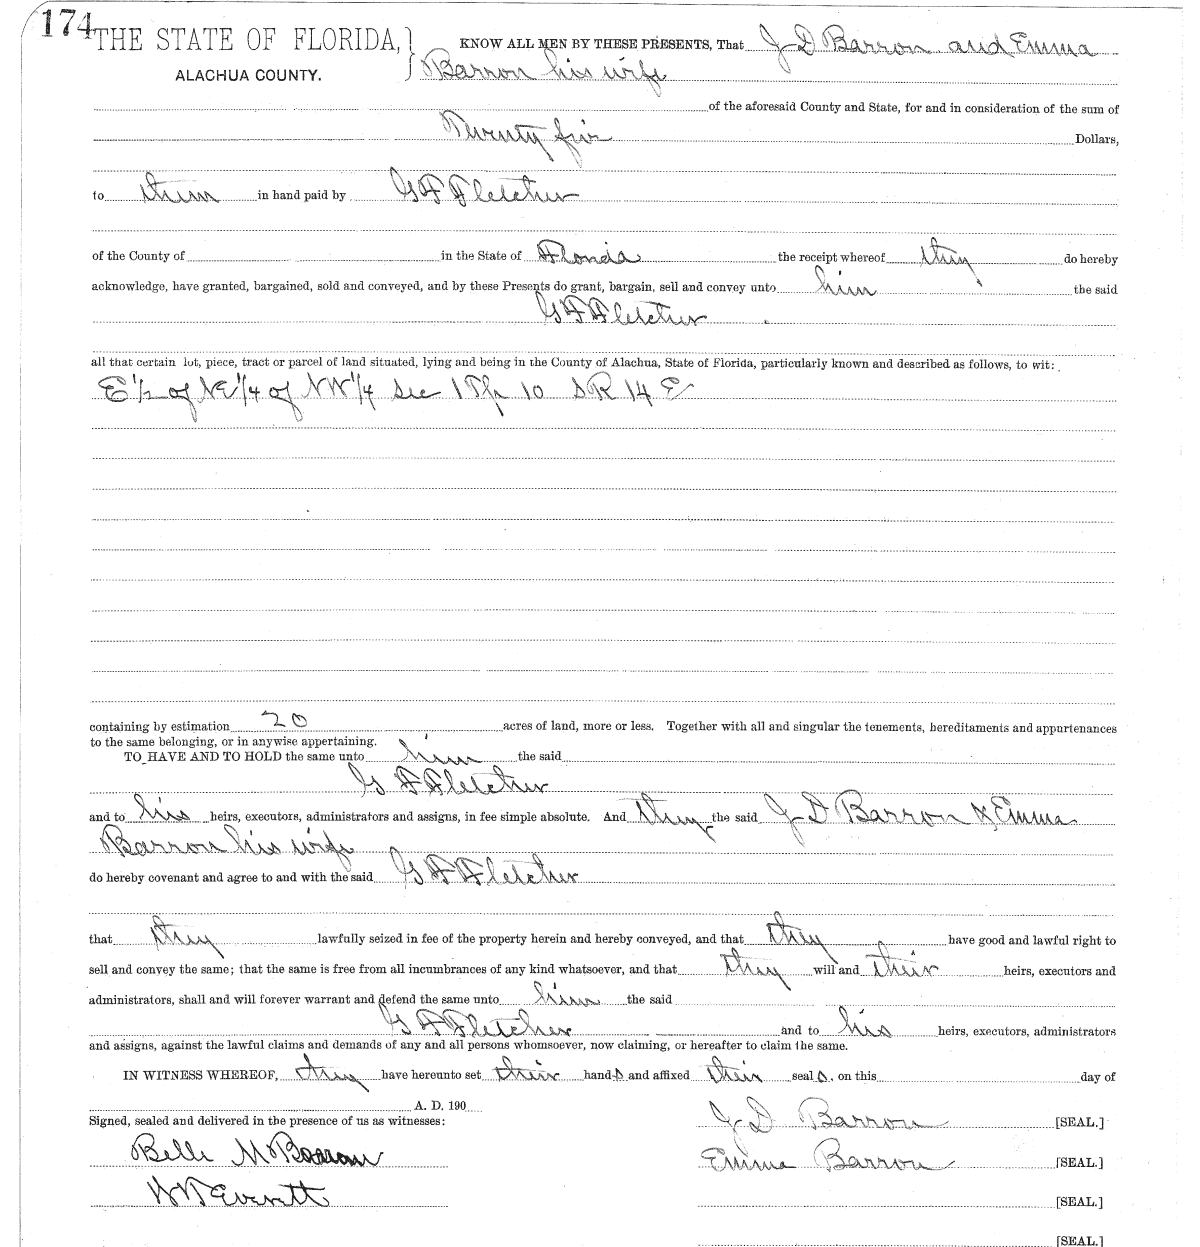 174
THE STATE OF FLORIDA, } KNOW ALL MEN BY THESE PRESENTS, That J D Barron and Emma
ALACHUA COUNTY. Barron his wife
of the aforesaid County and State, for and in consideration of the sum of
Twenty five Dollars,
to them in hand paid by G F Fletcher
of the County of in the State of Florida the receipt whereof they do hereby
acknowledge, have granted, bargained, sold and conveyed, and by these Presents do grant, bargain, sell and convey unto him the said
G F Fletcher
all that certain lot, piece, tract or parcel of land situated, lying and being in the County of Alachua, State of Florida, particularly known and described as follows, to wit:
E 1/2 of NE 1/4 of NW 1/4 Sec 1 Tp 10 S R 14 E
containing by estimation 20 acres of land, more or less. Together with all and singular the tenements, hereditaments and appurtenances
to the same belonging, or in anywise appertaining.
TO HAVE AND TO HOLD the same unto him the said
G F Fletcher
and to his heirs, executors, administrators and assigns, in fee simple absolute. And they the said J D Barron & Emma
Barron his wife
do hereby covenant and agree to and with the said G F Fletcher
that they lawfully seized in fee of the property herein and hereby conveyed, and that they have good and lawful right to
sell and convey the same; that the same is free from all incumbrances of any kind whatsoever, and that they will and their heirs, executors and
administrators, shall and will forever warrant and defend the same unto him the said
G F Fletcher and to his heirs, executors, administrators
and assigns, against the lawful claims and demands of any and all persons whomsoever, now claiming, or hereafter to claim the same.
IN WITNESS WHEREOF, they have hereunto set their hands and affixed their seals, on this day of
A. D. 190
Signed, sealed and delivered in the presence of us as witnesses: J D Barron [SEAL.]
Belle M Barron Emma Barron [SEAL.]
Everett [SEAL.]
[SEAL.]